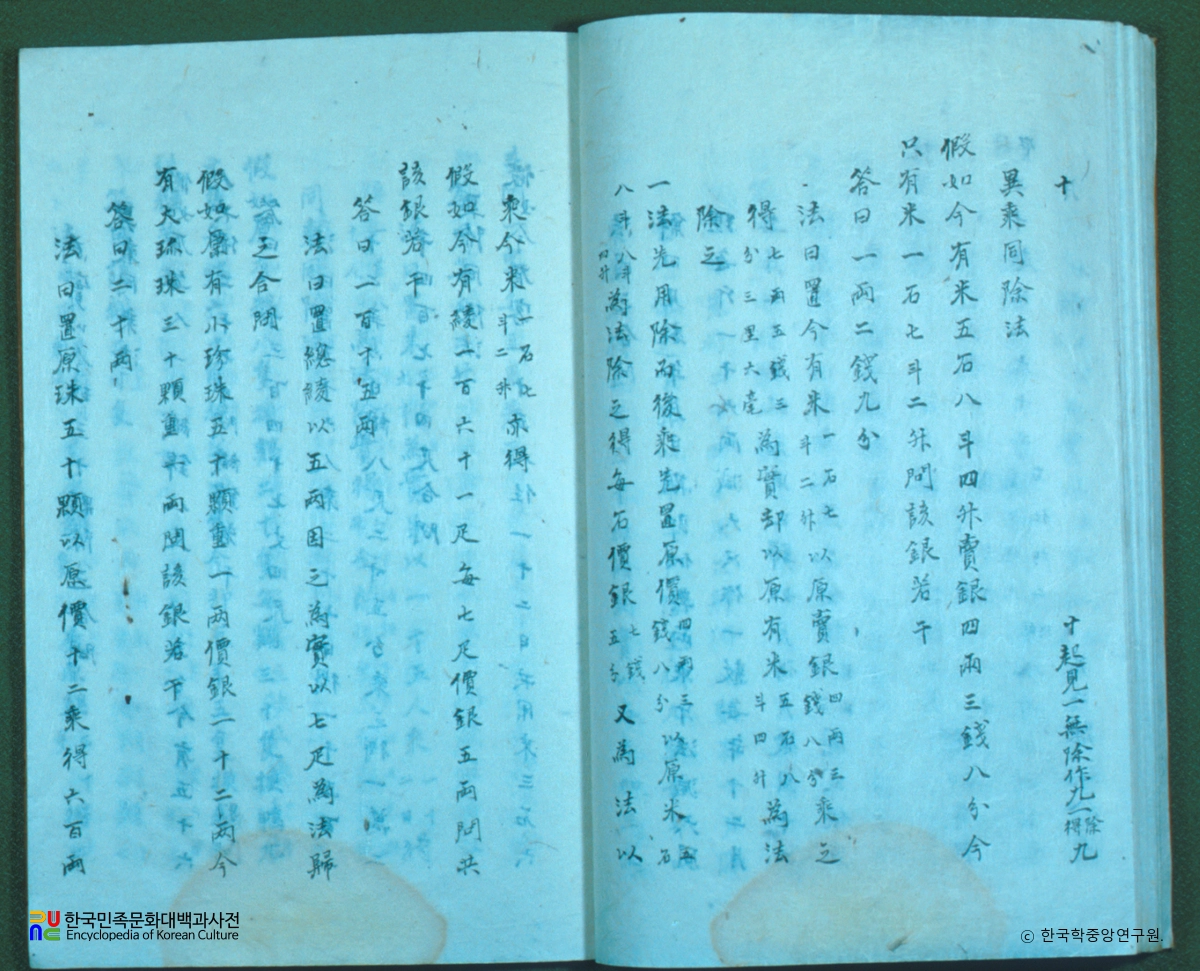 十 十起見一無除作九一除得九
異乘同除法
假如今有米五石八斗四升賣銀四兩三錢八分今
只有米一石七斗二升問該銀若干
答曰一兩二錢九分
法曰置今有米一石七斗二升以原賣銀四兩三錢八分乘之
得七兩五錢三分三里六毫為實却以原有米五石八斗四升為法
除之
一法先用除而後乘先置原價四兩三錢八分以原米五石
八斗八斗四升為法除之得每石價銀七錢五分又為法以
乘今米一石七斗二升亦得
假如今有綾一百六十一疋每七疋價銀五兩問共
該銀若干
答曰一百十五兩
法曰置總綾以五兩因之為實以七疋為法歸
之合問
假如原有小珍珠五十顆重一兩價銀二十二兩今
有大珠三十顆重一兩問該銀若干
答曰二十兩
法曰置原珠五十顆以原價十二乘得六百兩
한국민족문화대백과사전
Encyclopedia of Korean Culture
© 한국학중앙연구원.